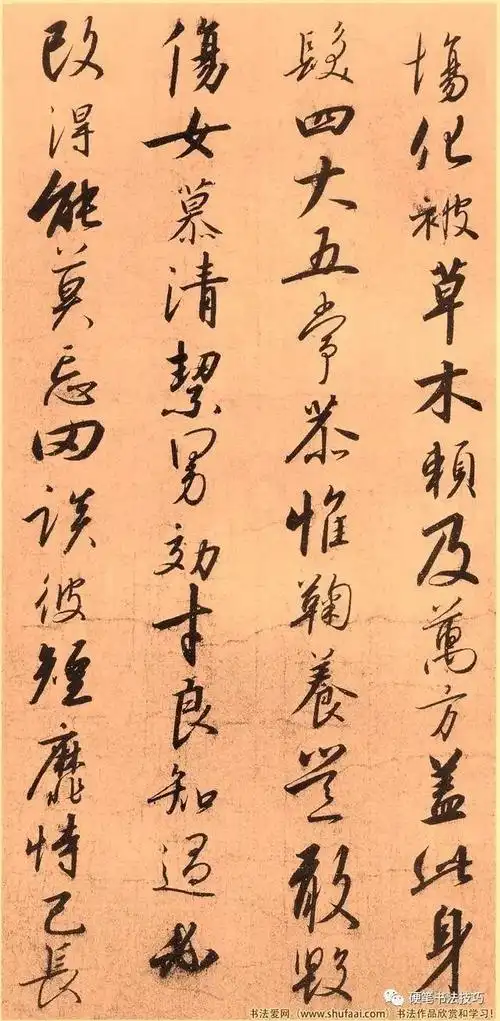 場化被草木賴及萬方蓋此身
髮四大五常恭惟鞠養豈敢毀
傷女慕清絜男効才良知過必
改得能莫忘罔談彼短靡恃己長
硬笔书法技巧
书法爱网（www.shufaai.com）书法作品欣赏和学习！